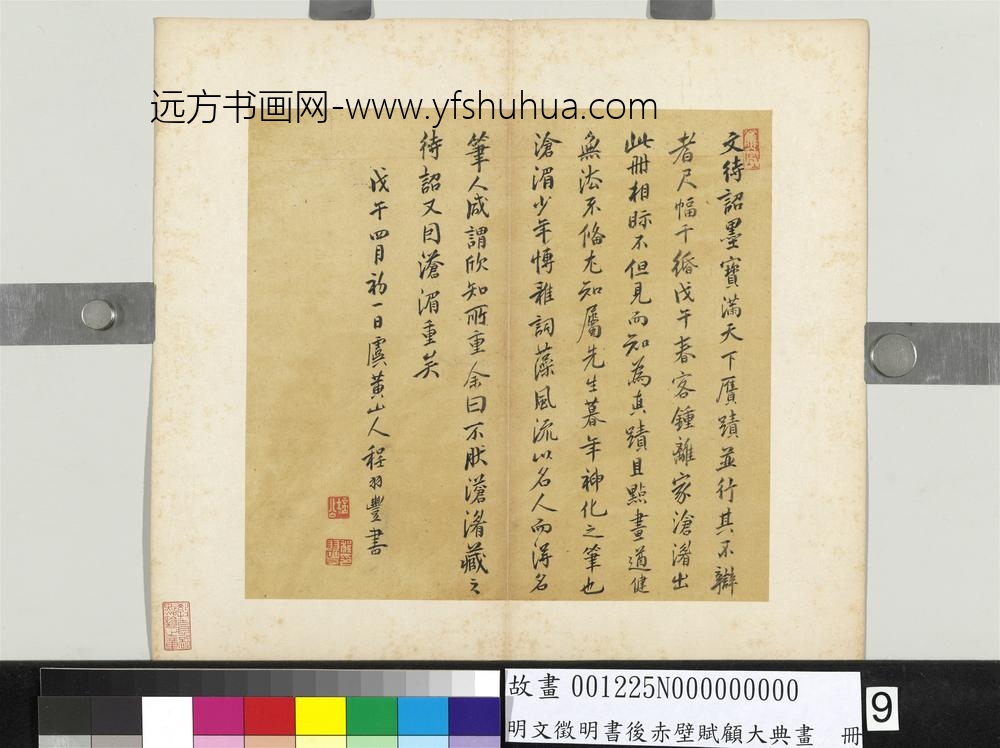 远方书画网-www.yfshuhua.com
文待詔墨寶滿天下贋蹟並行其不辯
者尺幅千緡戊午春客鍾離家滄湄出
此冊相眎不但見而知為真蹟且點畫遒健
無法不俻尤知屬先生暮年神化之筆也
滄湄少年博雅詞藻風流以名人而得名
筆人咸謂欣知所重余曰不然滄湄藏之
待詔又因滄湄重矣
戊午四月初一日虞黃山人程羽豐書
故畫 001225N000000000
明文徵明書後赤壁賦顧大典畫 冊
9